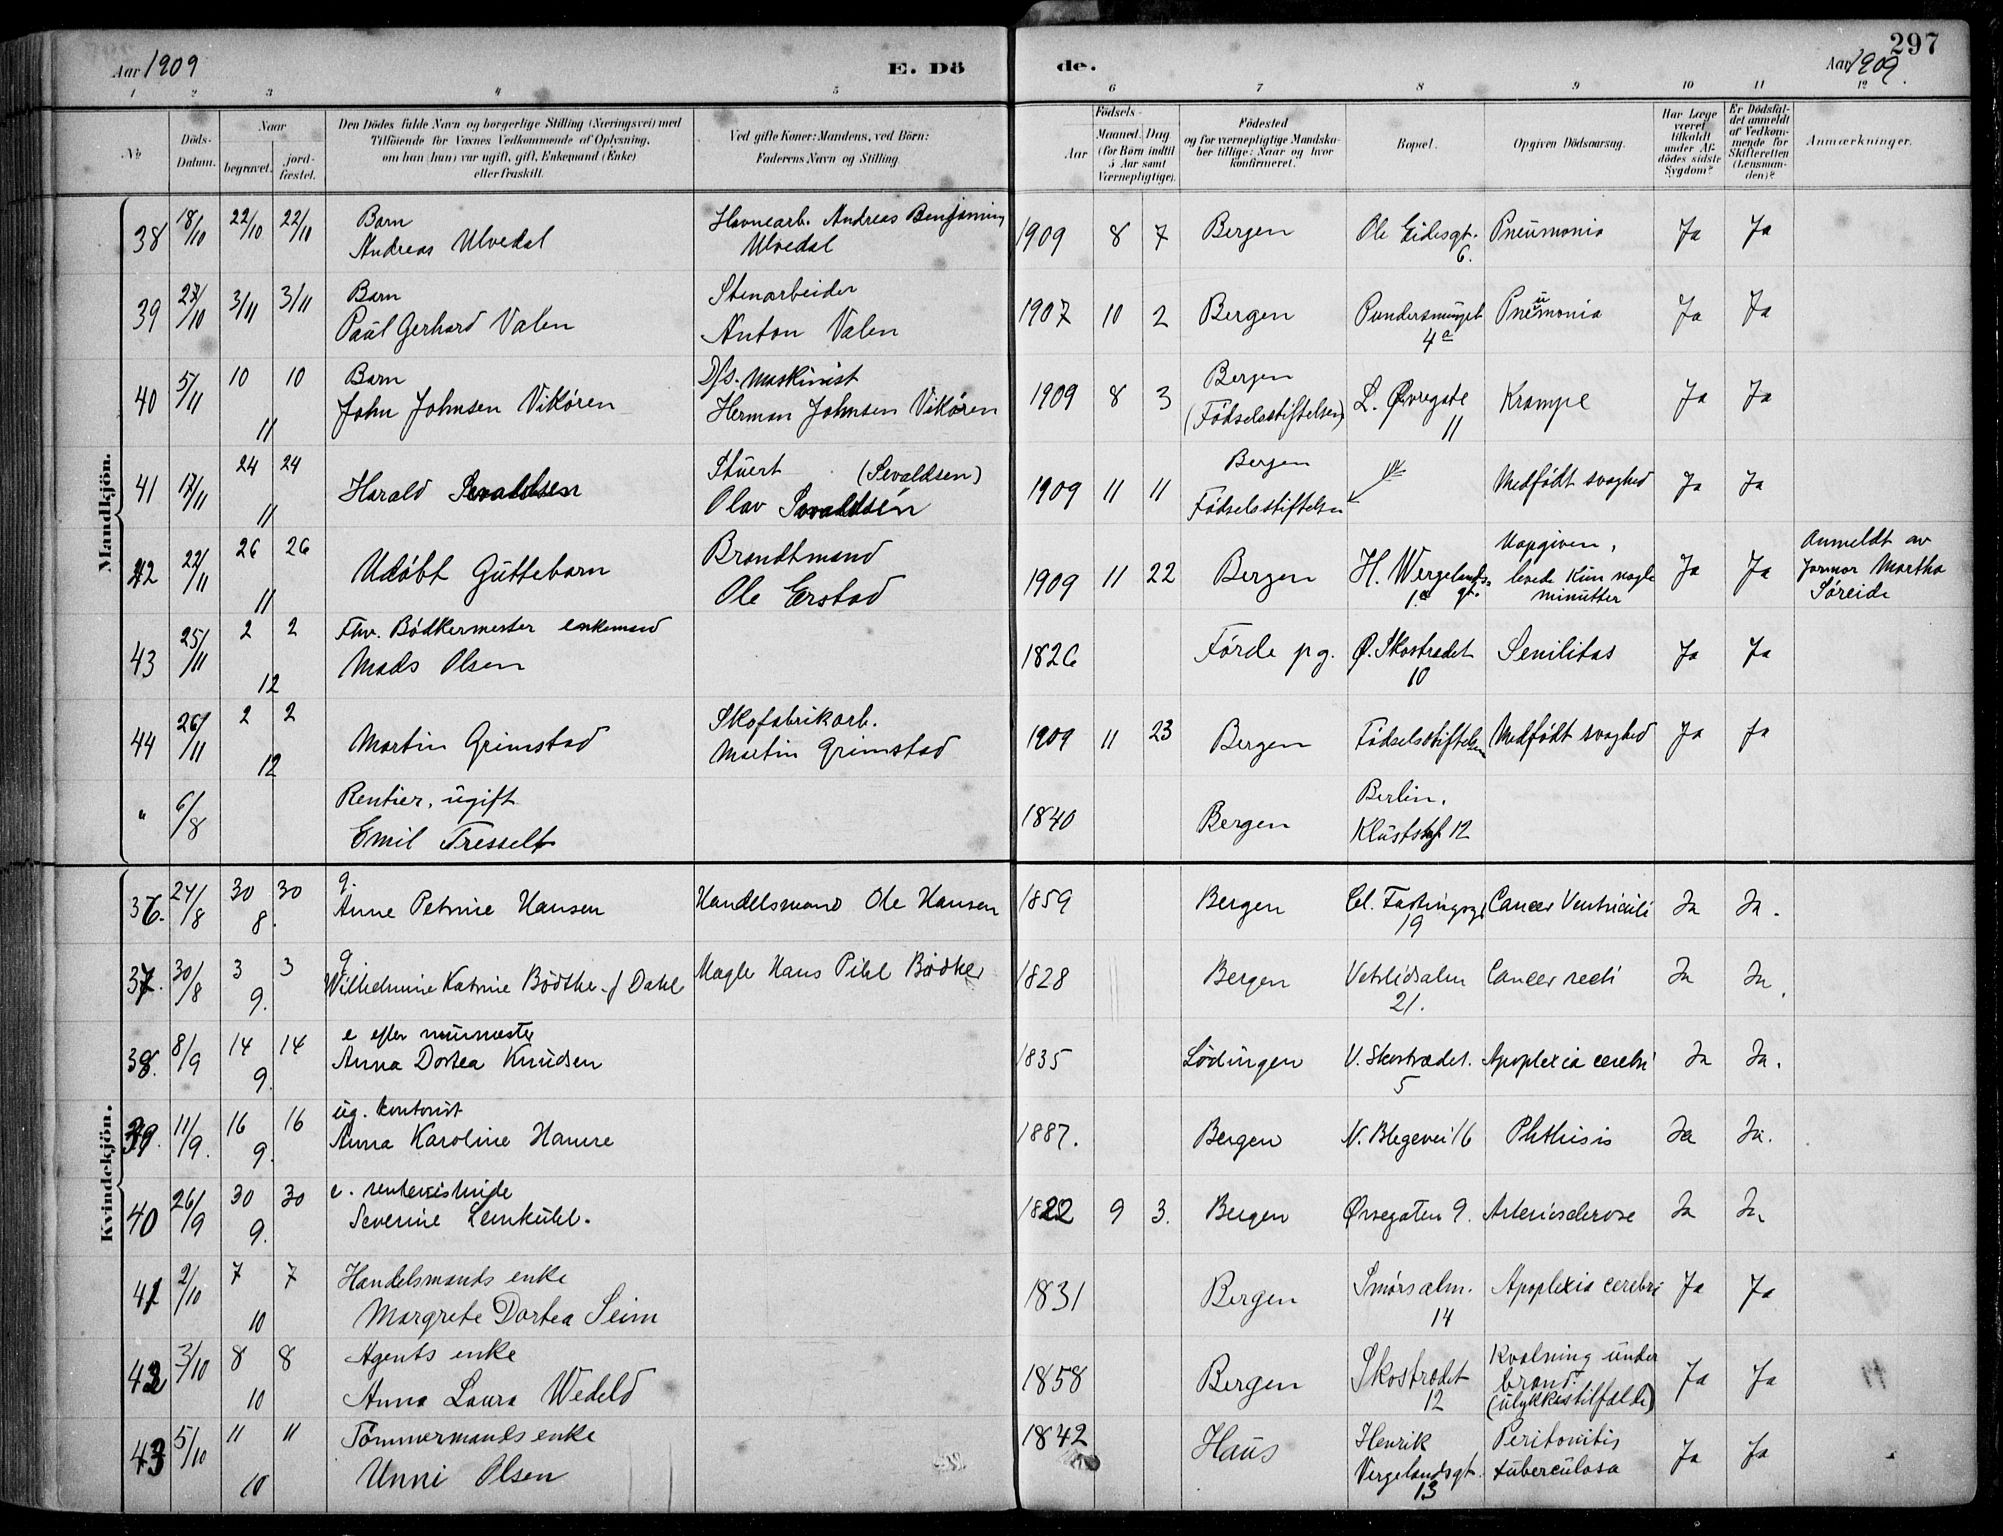 Aar 1909
E. Dö
de.
297
Aar 1909.
1 2 3 4 5 6 7 8 9 10 11 12
No
Döds-
Datum.
Naar
begravet.
jord-
fæstet.
Den Dödes fulde Navn og borgerlige Stilling (Næringsvei) med
Tilföiende for Voxnes Vedkommende af Oplysning,
om han (hun) var ugift, gift, Enkemand (Enke)
eller fraskilt.
Ved gifte Koner: Mandens, ved Börn:
Faderens Navn og Stilling.
Födsels-
Aar
Maaned. Dag
(for Börn indtil
5 Aar samt
Værnepligtige).
Födested
og for værnepligtige Mandska-
ber tillige: Naar og hvor
konfirmeret.
Bopæl.
Opgiven Dödsaarsag.
Har Læge
været
tilkaldt
under Af-
dödes sidste
Sygdom?
Er Dödsfal-
det anmeldt
af Vedkom-
mende for
Skifteretten
(Lensman-
den)?
Anmærkninger.
Mandkjön.
38 18/10 22/10 22/10 Barn Havnearb. Andreas Benjamin
Andreas Ulvedal Ulvedal 1909 8 7 Bergen Ole Eidesgt. 6. Pneumonia Ja Ja
39 27/10 3/11 3/11 Barn Stenarbeider
Paul Gerhard Valen Anton Valen 1907 10 2 Bergen 4a Pneumonia Ja Ja
40 5/11 10 10 Barn D/s. Maskinist
11 John Johnsen Vikören Herman Johnsen Vikören 1909 8 3 Bergen (Födselsstiftelsen) L. Øvregate 11 Krampe Ja Ja
41 17/11 24 24 Stuert (Sevaldsen)
11 Harald Sevaldsen Olav Sevaldsen 1909 11 11 Bergen Födselsstiftelsen Medfödt svaghed Ja Ja
42 22/11 26 26 Brandtmand
11 Udöbt Guttebarn Ole Erstad 1909 11 22 Bergen H. Wergelands- gt. 1a Uopgiven, levede kun nogle minutter Ja Ja Anmeldt av jormor Martha Söreide
43 25/11 2 2 Fhv. Bödkermester enkemand
12 Mads Olsen 1826 Förde pg. Ø. Skostrædet 10 Senilitas Ja Ja
44 26/11 2 2 Skofabrikarb.
12 Martin Grimstad Martin Grimstad 1909 11 23 Bergen Födselsstiftelsen Medfödt svaghed Ja Ja
" 6/8 Rentier, ugift
Emil Tresselt 1840 Bergen Berlin, 12
Kvindekjön.
36. 24/8 30 30 g.
8. Anne Petrine Hansen Handelsmand Ole Hansen 1859 Bergen Cl. Fastingsgt 19 Cancer Ventriculi Ja Ja.
37. 30/8 3 3 g.
9. Wilhelmine Katrine Bödtker f Dahl Mægler Hans Pihl Bödtker 1828 Bergen Vetrlidsalm 21. Cancer recti Ja Ja.
38. 8/9 14 14 e efter murmester
9. Anna Dortea Knudsen 1835 Lödingen V. Skostrædet. 5 Apoplexia cerebri Ja Ja.
39. 11/9. 16 16 ug. kontorist
9. Anna Karoline Hamre 1887. Bergen N. Blegevei 16 Phthisis Ja Ja.
40 26/9 30 30 e.
9. Severine Lemkuhl. 1822 9 3. Bergen Øvregaten 9. Arteriosclerose Ja Ja.
41 2/10 7 7 Handelsmands enke
10 Margrete Dortea Seim 1831 Bergen Smörsalm. 14 Apoplexia cerebri Ja Ja
42 3/10 8 8 Agents enke
10 Anna Laura Wedeld 1858 Bergen Skostrædet 12 Kvælning under brand. (ulykkestilfælde) Ja Ja
43 5/10 11 11 Tömmermands enke
10 Unni Olsen 1842 Haus Henrik Vergelandsgt. 13 Peritonitis tuberculosa Ja Ja